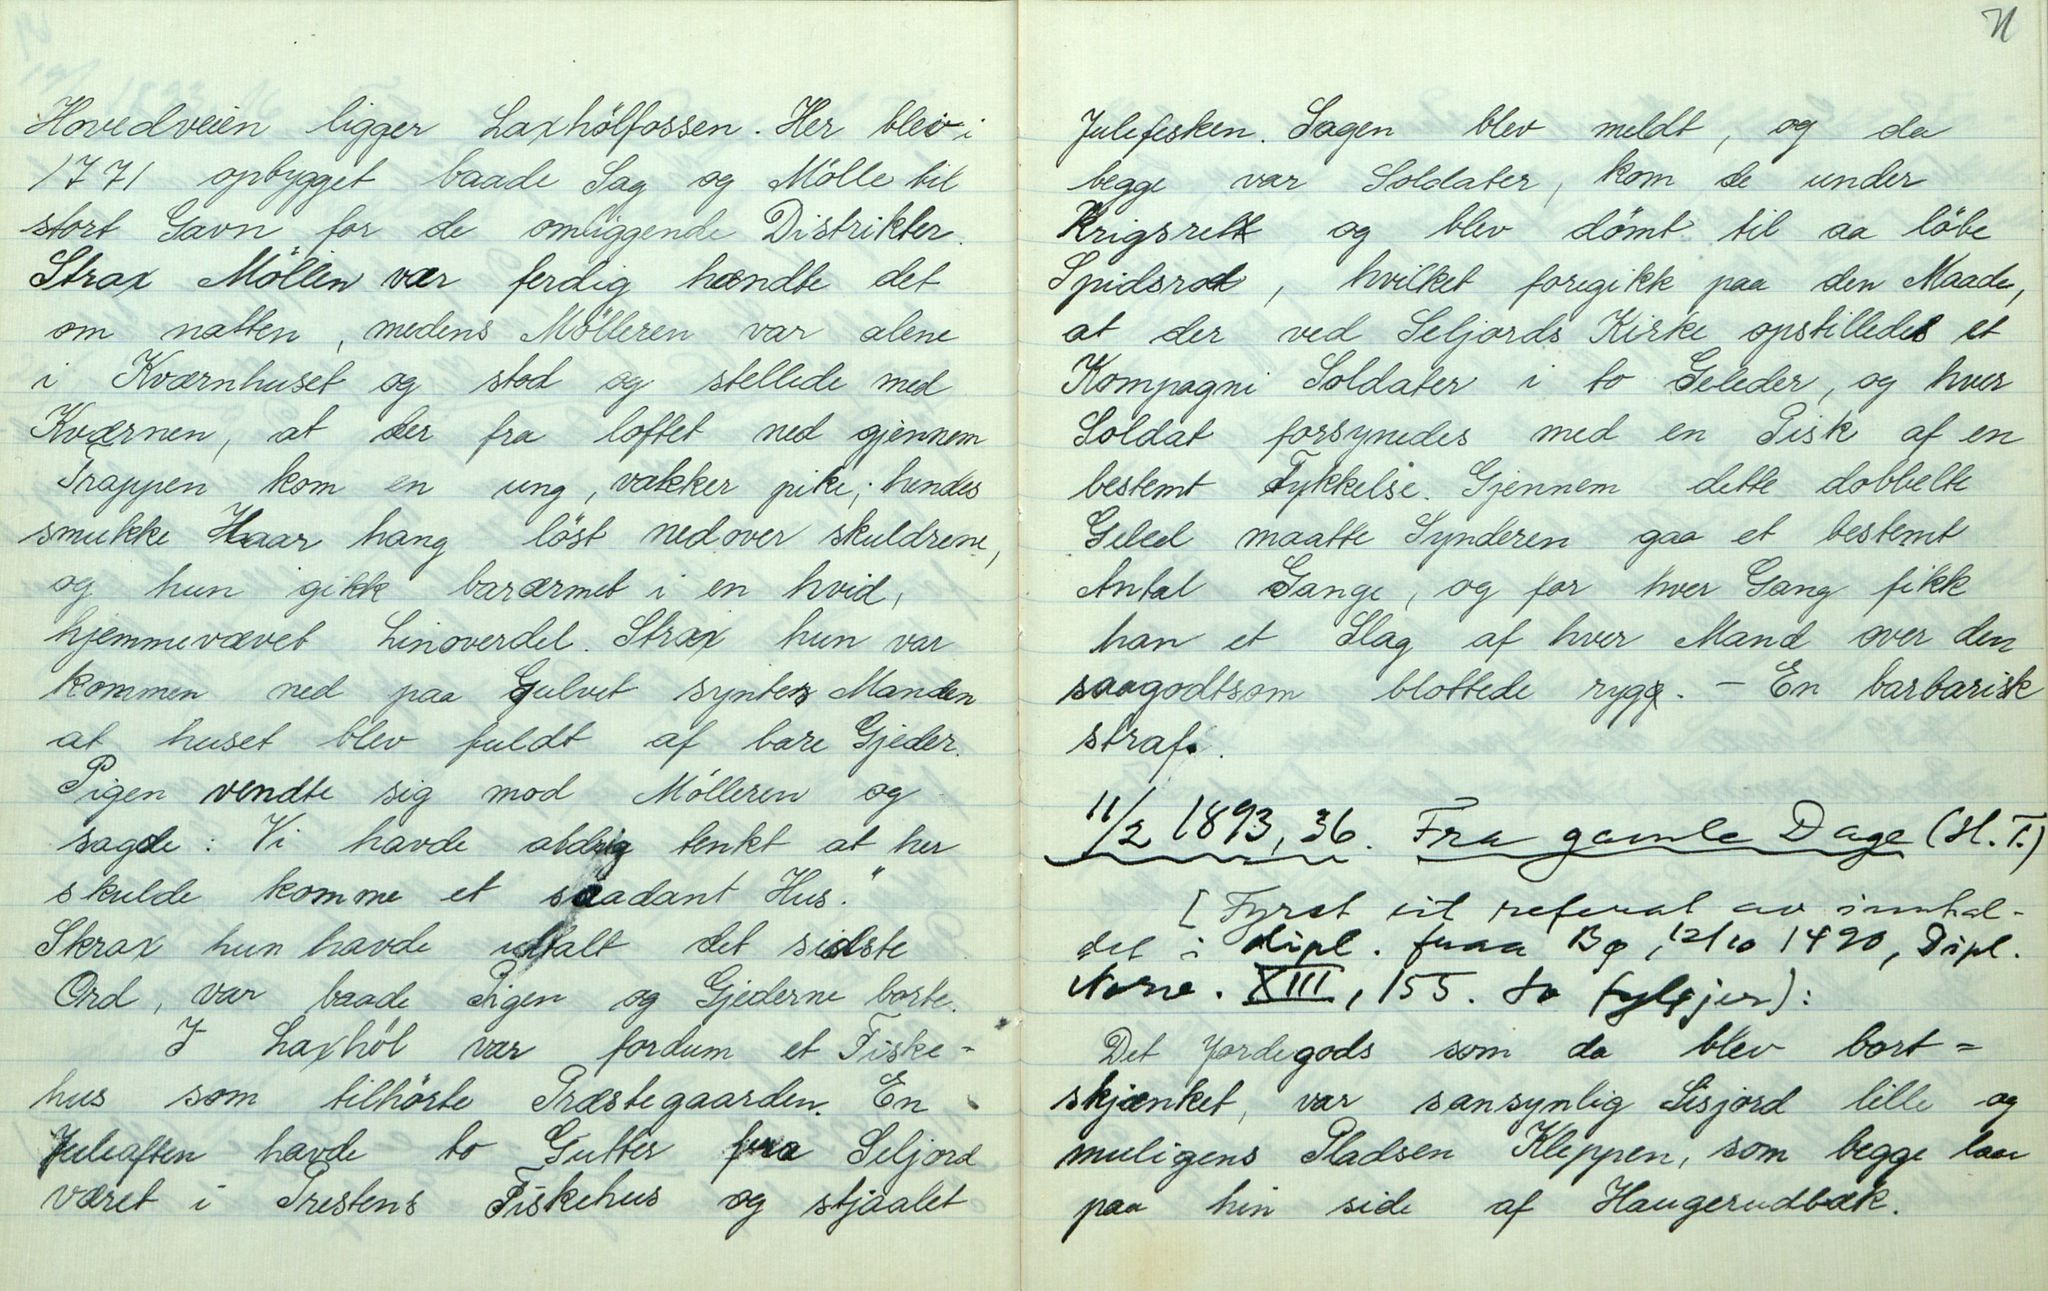 Hovedveien ligger Laxhölfossen. Her blev i
1771 opbygget baade Sag og Mölle til
stort Gavn for de omliggende Distrikter.
Strax Möllen var ferdig hændte det
om natten, medens Mölleren var alene
i Kværnhuset og stod og stellede med
Kværnen, at der fra loftet ned gjennem
Trappen kom en ung, vakker pike; hendes
smukke Haar hang löst nedover skuldrene,
og hun gikk barærmet i en hvid,
hjemmevævet Linoverdel. Strax hun var
kommen ned paa Gulvet syntes Manden
at huset blev fuldt af bare Gjeder.
Pigen vendte sig mod Mölleren og
sagde: Vi havde aldrig tenkt at her
skulde komme et saadant Hus."
Strax hun havde uttalt det sidste
Ord, var baade Pigen og Gjederne borte.
I Laxhöl var fordum et Fiske-
hus som tilhörte Præstegaarden. En
Juleaften havde to Gutter fra Seljord
været i Prestens Fiskehus og stjaalet
71
Julefisken. Sagen blev meldt, og da
begge var Soldater, kom de under
Krigsrett og blev dömt til aa löbe
Spidsrod, hvilket foregikk paa den Maade,
at der ved Seljords Kirke opstilledes et
Kompagni Soldater i to Geleder, og hver
Soldat forsynedes med en Pisk af en
bestemt Tykkelse. Gjennem dette dobbelte
Geled maatte Synderen gaa et bestemt
Antal Gange, og for hver Gang fikk
han et Slag af hver Mand over den
saagodtsom blottede rygg. - En barbarisk
straf.
11/2 1893, 36. Fra gamle Dage (H. T.)
[Fyrst eit referat av innhal-
det i dipl. fraa Bø, 12/10 1490, Dipl.
Norv. XIII, 155. So fylgjer):
Det Jordegods som da blev bort=
skjænket, var sansynlig Sisjord lille og
muligens Pladsen Kleppen, som begge laa
paa hin side af Haugerudbæk.